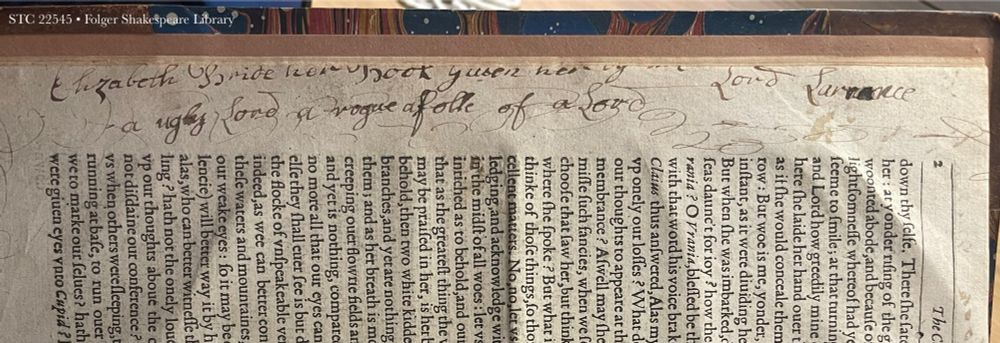 STC 22545 • Folger Shakespeare Library
Elizabeth Bride her Book
Lord Larrance
a ugly Lord a rogue a folle of a Lord
2 The C
down thy ſelfe. There ſate
her: at yonder riſing of the g
woonted abode, and becauſe o
lightſomneſſe whereof had ye
ſeeme to ſmile; at that turning
and Lord how greedily mine
here ſhe laide her hand ouer t
as if ſhe would conceale them
row: But woe is me, yonder,
inſtant, as it were diuiding he
But when ſhe was imbarked, d
ſeas daunc't for ioy? how the
rania? O Vrania, bleſſed be th
with that word his voice brak
Claius thus anſwered, Alas my
vp onely our loſſes? What d
our thoughts to appeare at th
membrance? Aſwell may ſhe
miſſe ſuch fancies, when we ſ
chooſe that ſaw her, but think
where ſhe ſpoke? But what i
thinke of thoſe things, ſo tho
cellent matters. No, no, let vs
ledging, and acknowledge wi
in the midſt of all woes: let vs
inriched as to behold, and ou
that as the greateſt thing the
may be praiſed in her, is her b
behold, then two white kidde
branches, and yet are nothing
them: and as her breath is mo
creeping ouer flowrie fields an
and yet is nothing, compared
no more all that our eyes can
elſe they ſhall euer ſee is but
the flocke of vnſpeakable ver
indeed, as wee can better con
theſe waters and mountains
our weake eyes: ſo it may be
lencie) will better way it by h
alas, who can better witneſſe
ling? hath not the onely loue
vp our thoughts about the
not diſdaine our conference?
vs when others were ſleeping,
running at baſe, to run ouer
we to marke our ſelues? hath
were giuen eyes vnto Cupid?